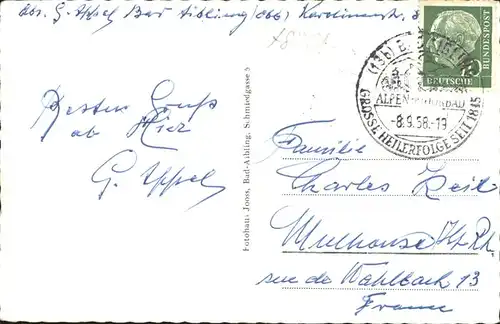 Abs. G. Appel Bad Aibling (Obb) Karolinenstr. 8
Besten Gruß
ab Hier
G. Appel
Fotohaus Jooss, Bad-Aibling, Schmiedgasse 5
(13b) BAD AIBLING
ALPEN-MOORBAD
-8.9.58.-19
GROSSE HEILERFOLGE SEIT 1845
15
DEUTSCHE
BUNDESPOST
Familie
Charles
Mulhouse Ht Rh.
rue de Wahlbach 13
France